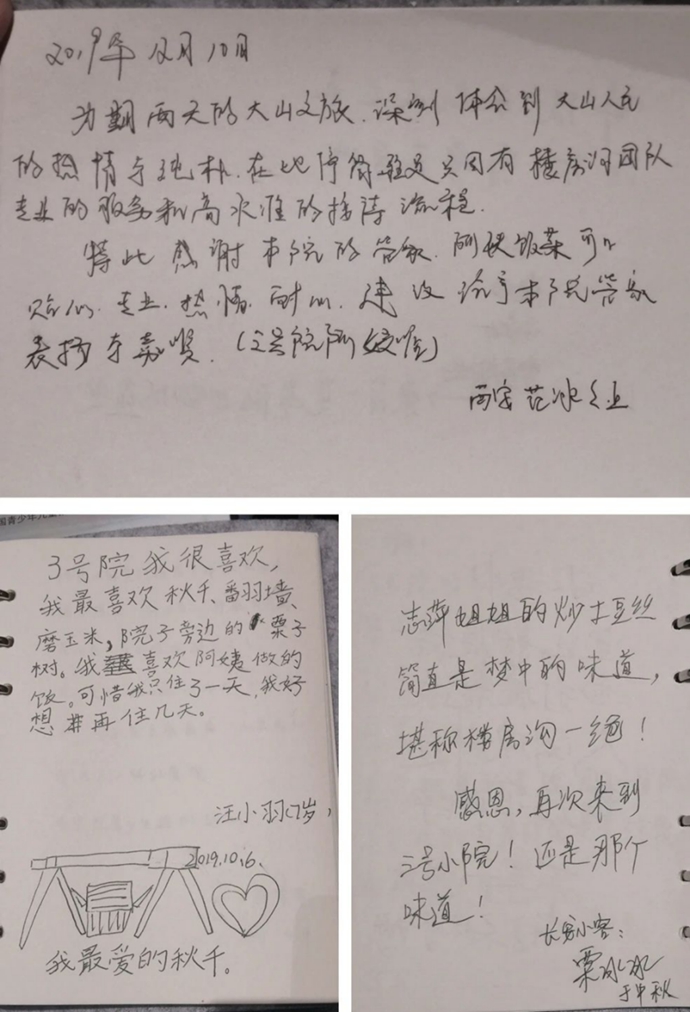 2019年12月10日
为期两天的大山之旅.深刻体会到大山人民
的热情与纯朴.在此停留 只因有楼房沟团队
专业的服务和高水准的接待流程.
特此感谢本院的管家.阿姨饭菜可口
贴心.专业.热情.耐心.建议给予本院管家
表扬与嘉奖.
3号院我很喜欢,
我最喜欢秋千、翻羽墙、
磨玉米,院子旁边的栗子
树。我喜欢阿姨做的
饭。可惜我只住了一天,我好
想再住几天。
汪小羽(7岁,
2019.10.6.
我最爱的秋千。
志萍姐姐的炒土豆丝
简直是梦中的味道,
堪称楼房沟一绝!
感恩,再次来到
三号小院!还是那个
味道!
长安小客:
栗冰冰
于中秋